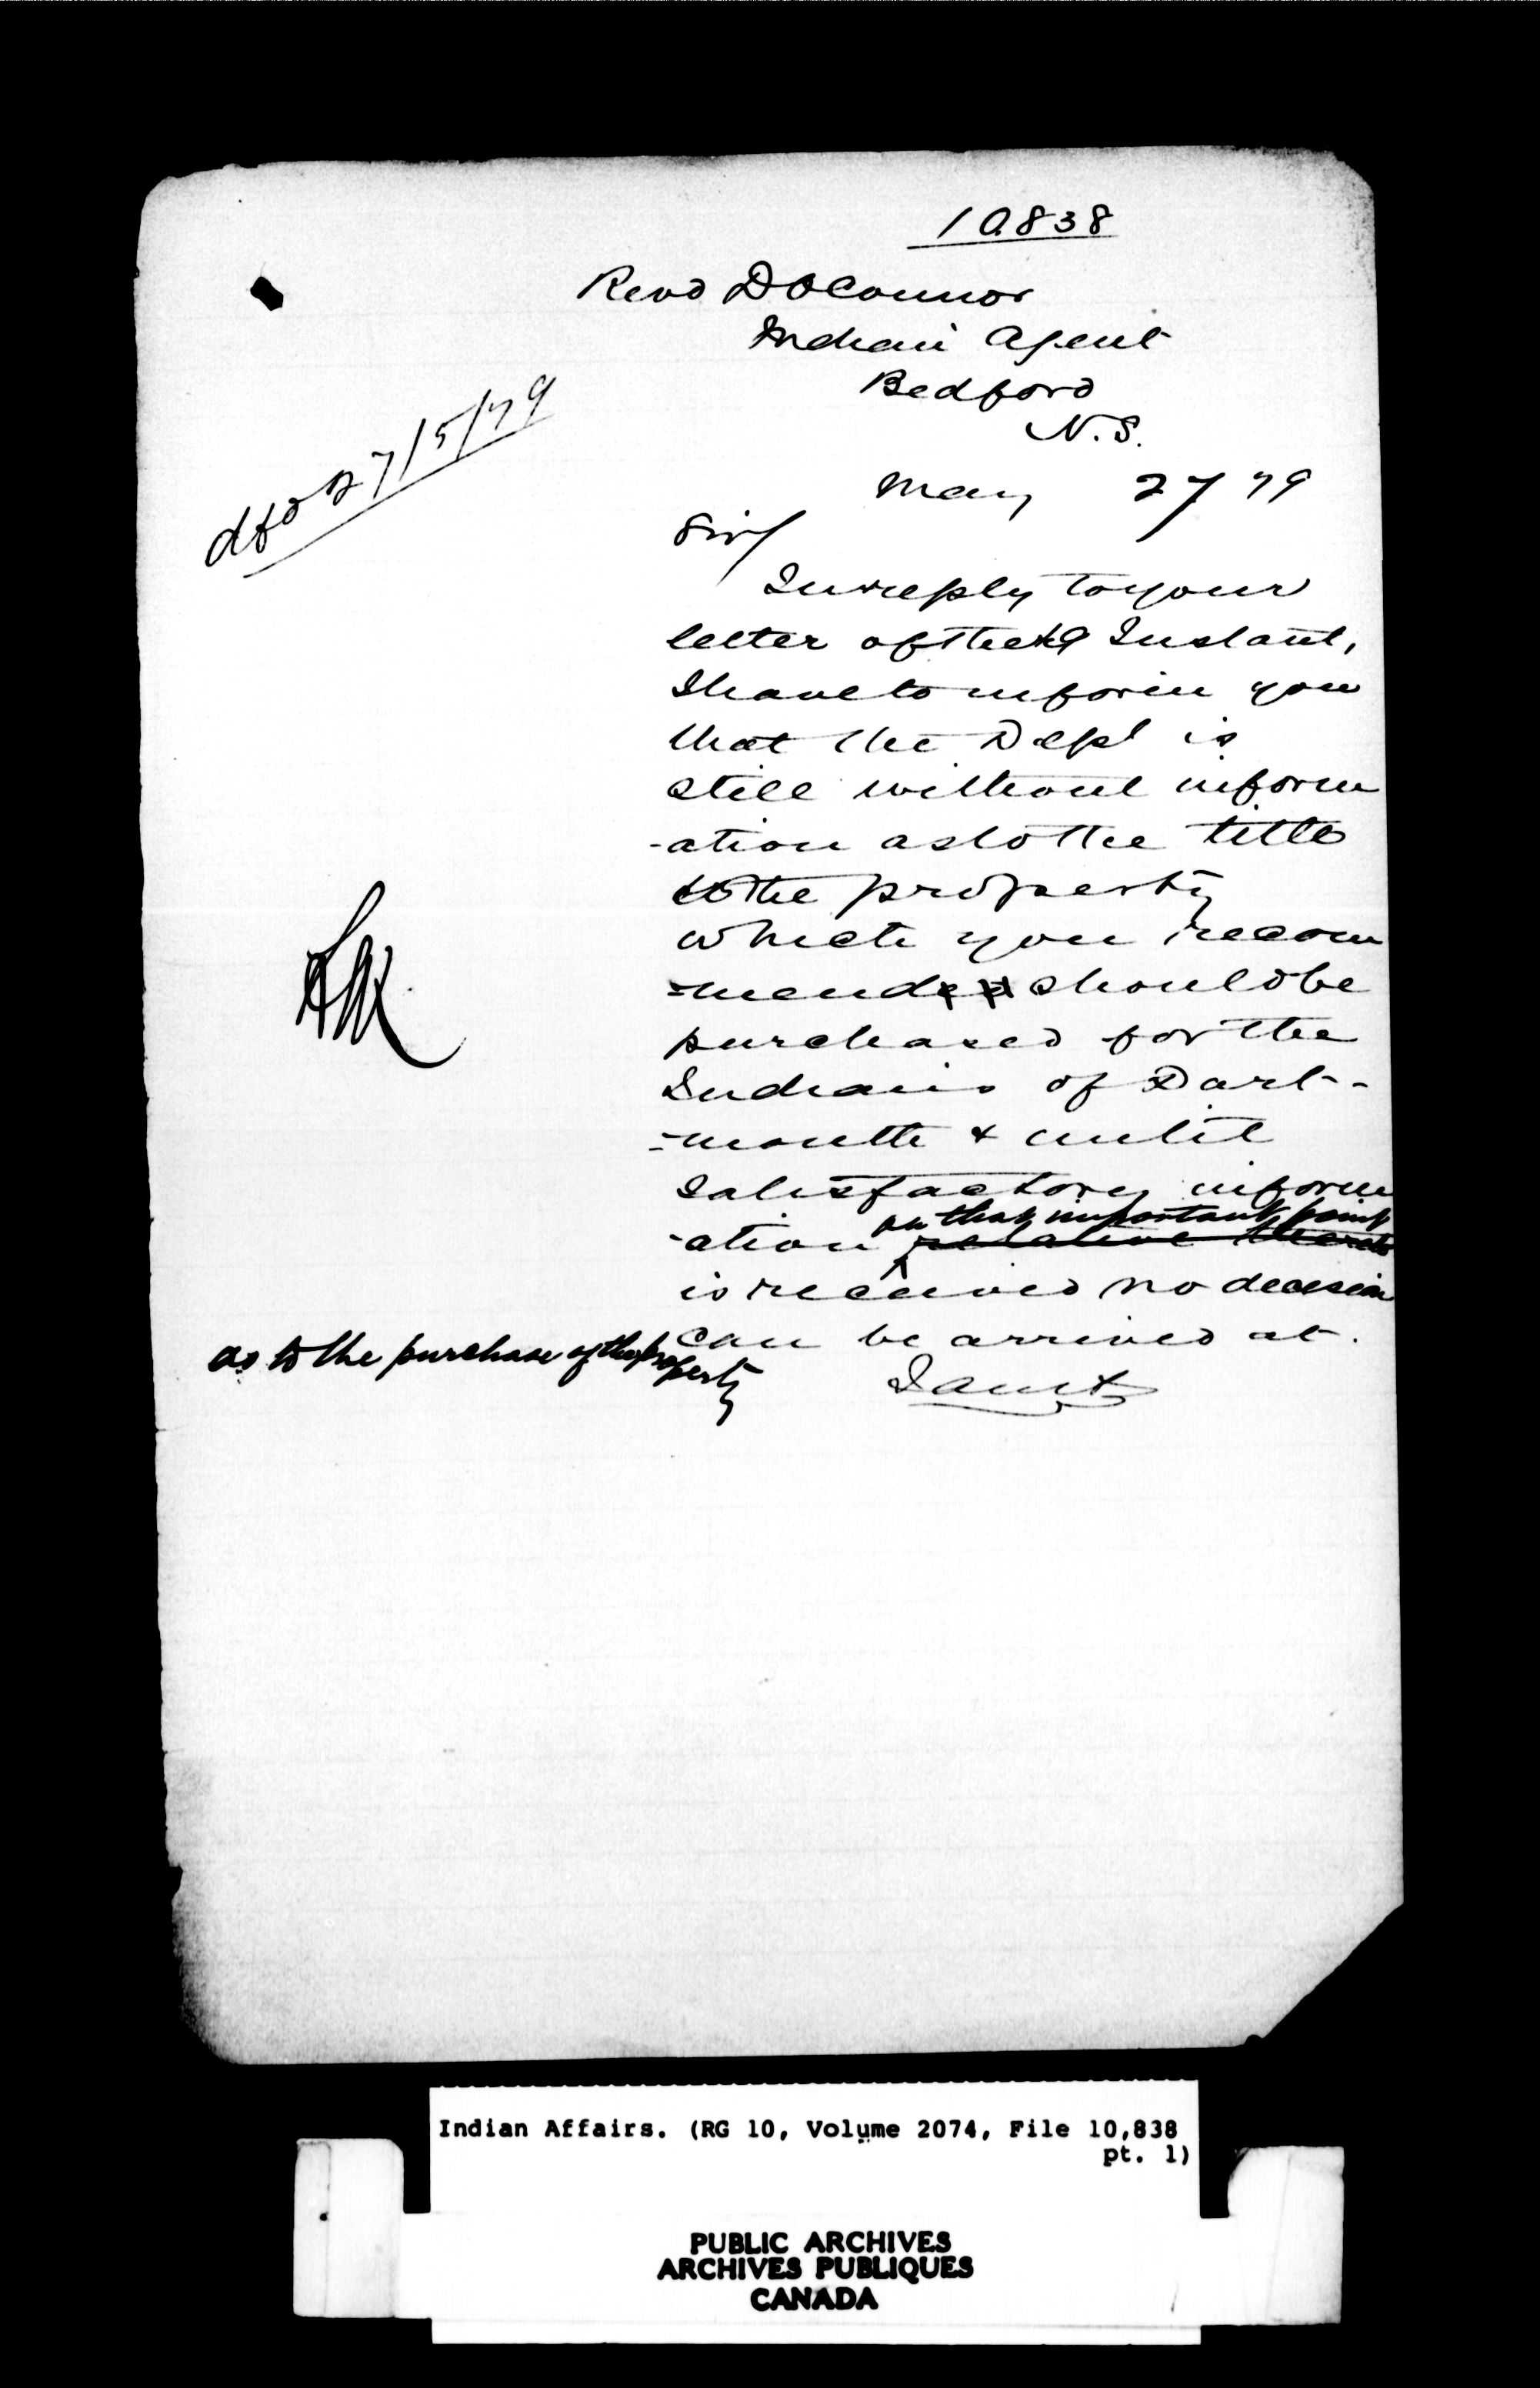 10838
Revd D OConnor
Indian Agent
Bedford
N.S.
May 27 79
dfd 27/5/79
Sir/
In reply to your
letter of the 19 Instant,
I have to inform you
that the Dept is
still without inform
-ation as to the title
to the property
which you recom
=mended should be
purchased for the
Indians of Dart-
=mouth & until
satisfactory inform
on that important point
-ation relative thereto
is received no decision
can be arrived at.
as to the purchase of the property
I am &
Indian Affairs. (RG 10, Volume 2074, File 10,838
pt. 1)
PUBLIC ARCHIVES
ARCHIVES PUBLIQUES
CANADA